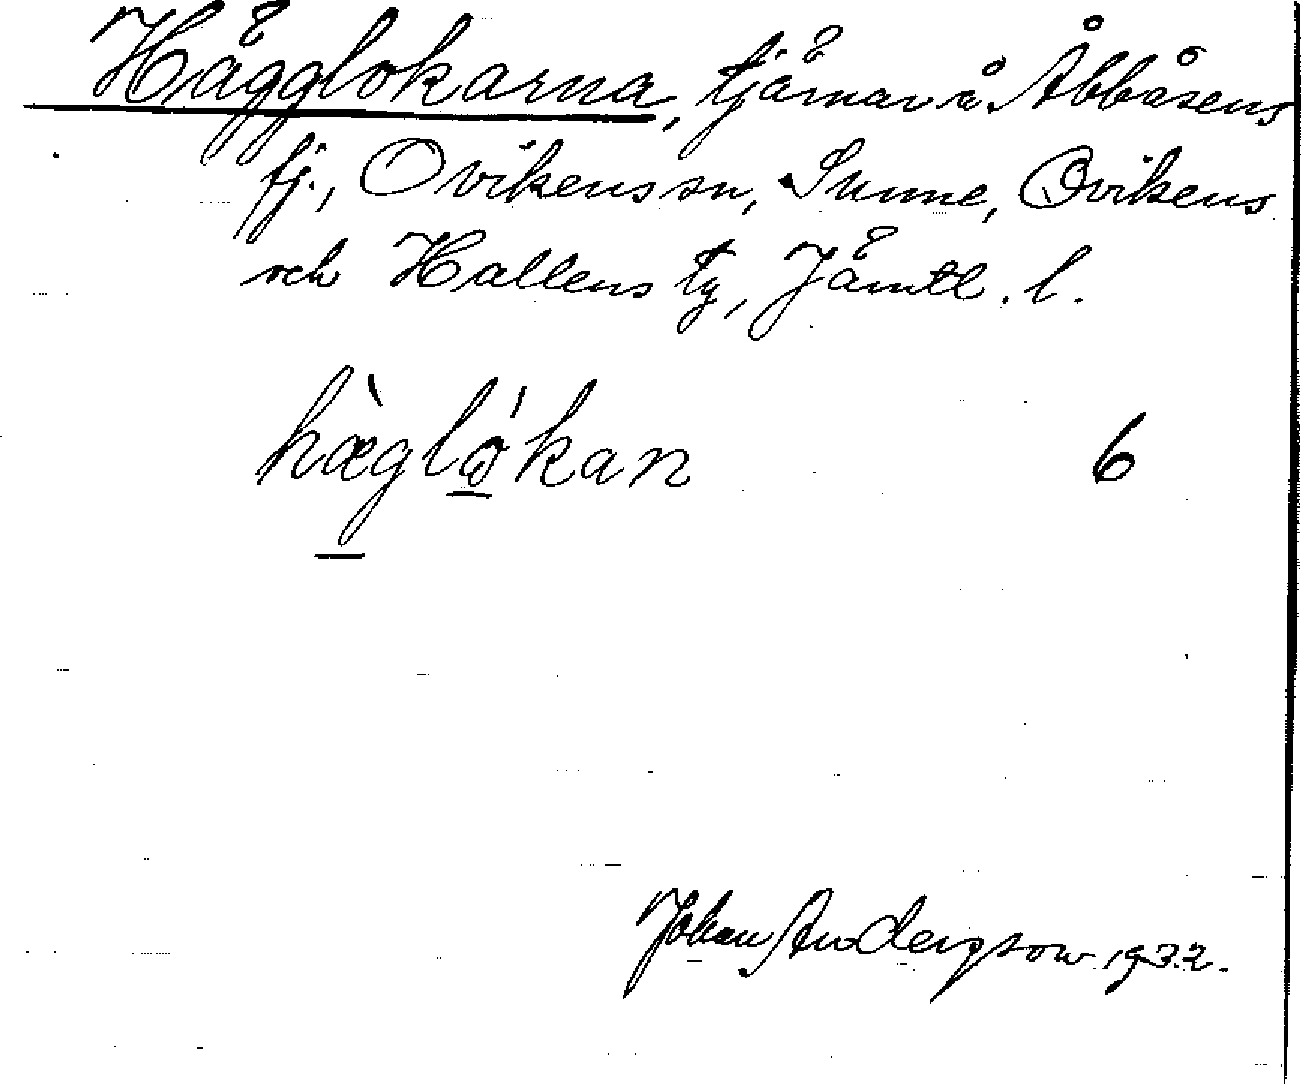 Hägglokarna, tjärnar å Åbbåsens
fj., Ovikens sn, Sunne, Ovikens
och Hallens tg, Jämtl. l.
hæ̀glo̱̍kan 6
Johan Anderson 1932.